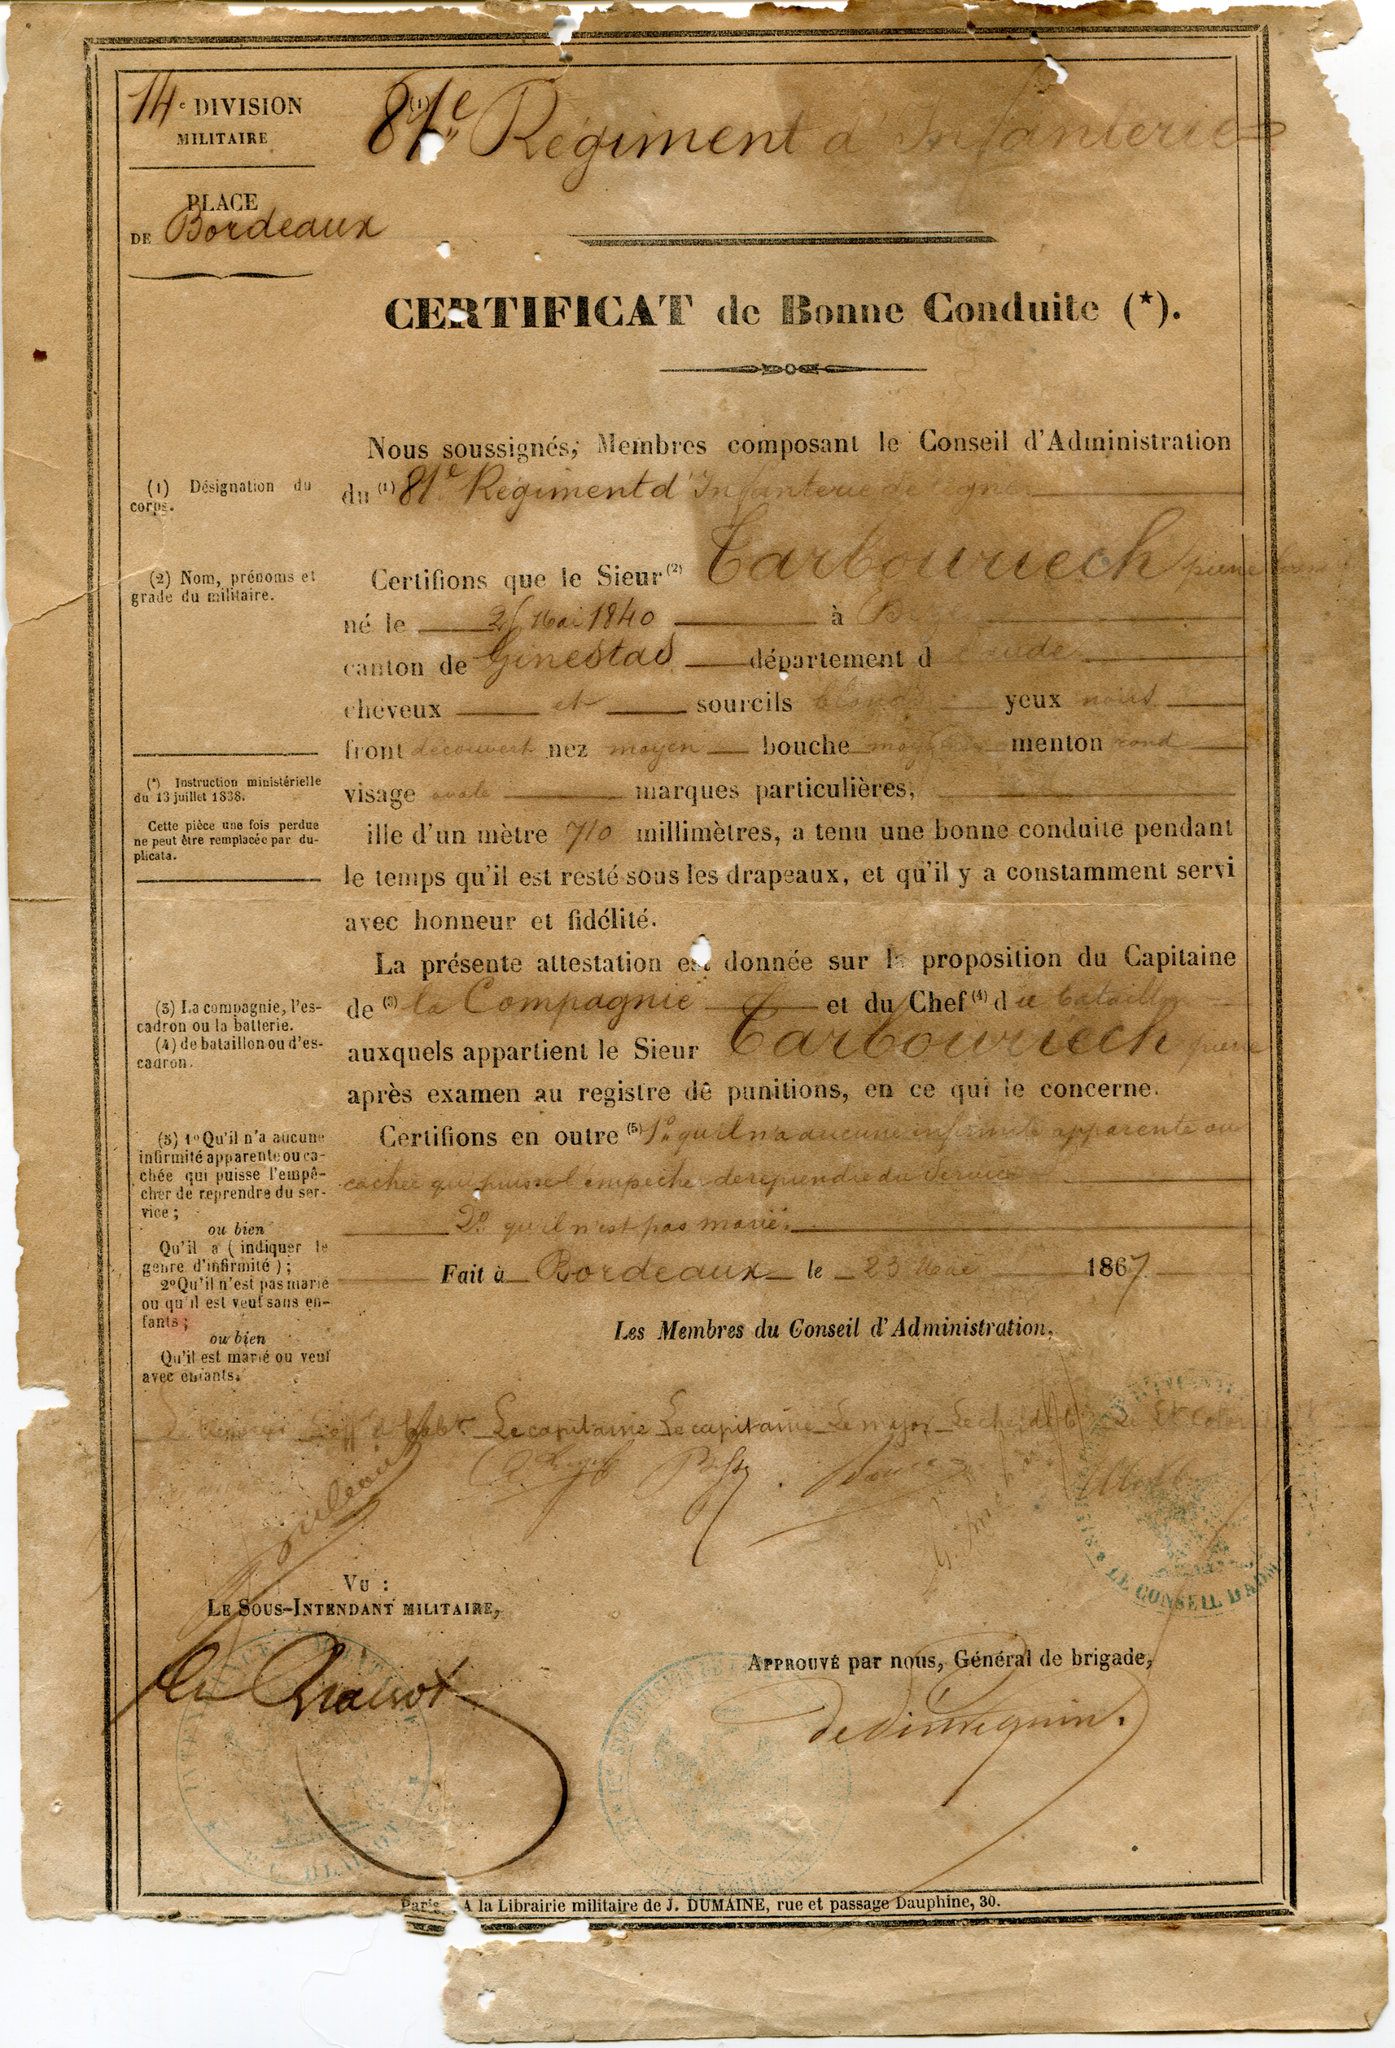 14e DIVISION
MILITAIRE
PLACE
DE Bordeaux
(1)
81e Régiment d'Infanterie
CERTIFICAT de Bonne Conduite (*).
Nous soussignés, Membres composant le Conseil d'Administration
du (1) 81e Régiment d'Infanterie de ligne
(1) Désignation du
corps.
Certifions que le Sieur (2) Tarbouriech pierre
(2) Nom, prénoms et
grade du militaire.
né le Mai 1840 à
canton de Ginestas département d laude
cheveux et sourcils blonds yeux noirs
front découvert nez moyen bouche moyenne menton rond
visage ovale marques particulières,
(*) Instruction ministérielle
du 13 juillet 1838.
Cette pièce une fois perdue
ne peut être remplacée par du-
plicata.
ille d'un mètre 710 millimètres, a tenu une bonne conduite pendant
le temps qu'il est resté sous les drapeaux, et qu'il y a constamment servi
avec honneur et fidélité.
La présente attestation est donnée sur la proposition du Capitaine
de (3) la Compagnie et du Chef (4) de bataillon
auxquels appartient le Sieur Tarbouriech pierre
après examen au registre de punitions, en ce qui le concerne.
(3) La compagnie, l'es-
cadron ou la batterie.
(4) de bataillon ou d'es-
cadron.
Certifions en outre (5) 1o qu'il n'a aucune infirmité apparente ou
cachée qui puisse l'empêcher de reprendre du service
2o qu'il n'est pas marié.
(5) 1o Qu'il n'a aucune
infirmité apparente ou ca-
chée qui puisse l'empê-
cher de reprendre du ser-
vice;
ou bien
Qu'il a (indiquer le
genre d'infirmité);
2o Qu'il n'est pas marié
ou qu'il est veuf sans en-
fants;
ou bien
Qu'il est marié ou veuf
avec enfants.
Fait à Bordeaux le 23 1867
Les Membres du Conseil d'Administration,
Le capitaine Le capitaine Le major Le chef de Bon Le Lt Colonel
LE CONSEIL D'ADM
VU :
LE SOUS-INTENDANT MILITAIRE,
APPROUVÉ par nous, Général de brigade,
INTENDANCE MILITAIRE
Paris. A la Librairie militaire de J. DUMAINE, rue et passage Dauphine, 30.